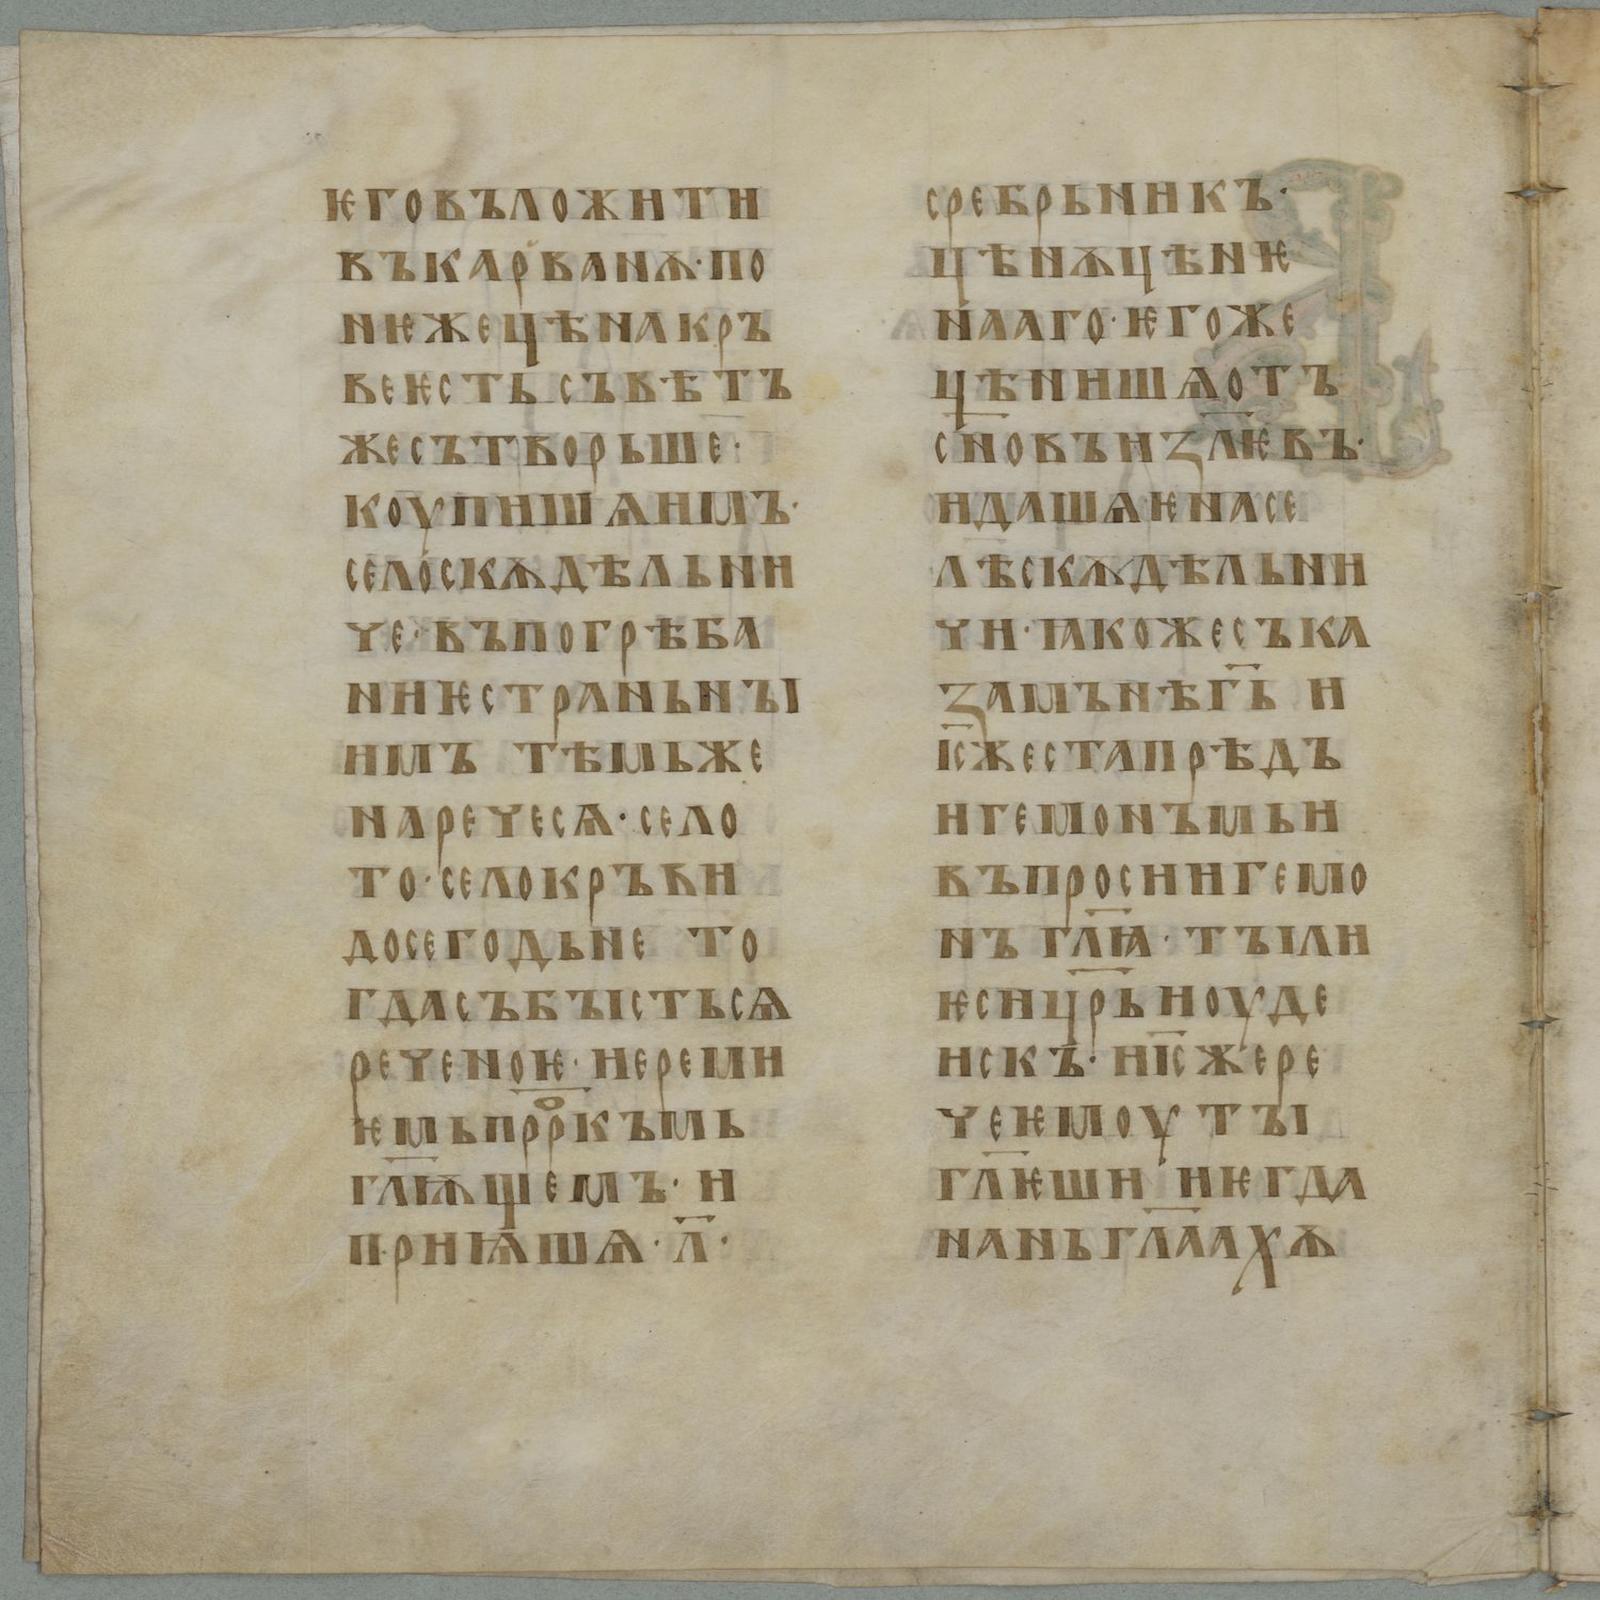 ѥговъложити
въкарванѫ·по
нѥжецѣнакръ
веѥсть съвѣтъ
жесътворьше·
коупишѧимъ·
селоскѫдѣльни
че·въпогрѣба
ниѥстраньнꙑ
имъ тѣмьже
наречесѧ·село
то·селокръви
досегодьне то
гдасъбꙑстьсѧ
реченоѥ·иереми
ѥмьпр҃ркъмь
гл҃ѭщемъ· и
приꙗшѧ·л҃·
сребрьникъ·
цѣнѫцѣнѥ
нааго·ѥгоже
цѣнишѧотъ
сн҃овъиꙁл҃ѥвъ·
идашѧꙗнасе
лѣскѫдѣльни
чи·ꙗкожесъка
ꙁамънѣгь҃ и
іс҃жестапрѣдъ
игемонъмьи
въпросиигемо
нъ гл҃ꙗ·тꙑли
ѥсицр҃ьиоуде
искъ·иіс҃жере
чеѥмоу тꙑ
гл҃ѥши иѥгда
наньгл҃аахѫ